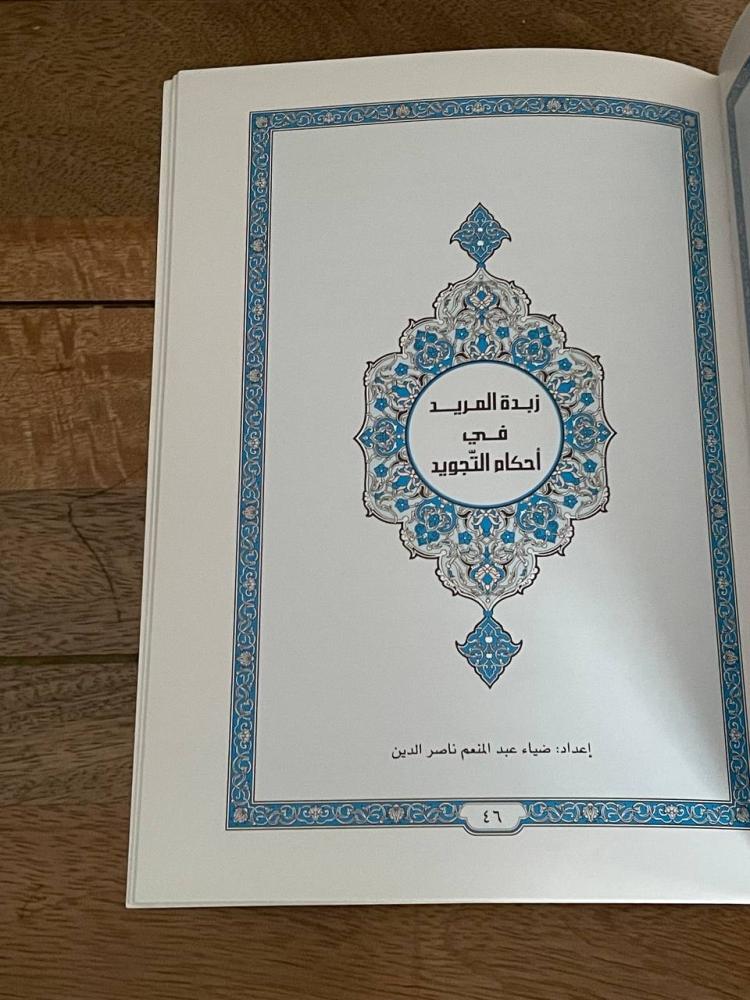 زبدة المريد
في
أحكام التّجويد
إعداد: ضياء عبد المنعم ناصر الدين
٤٦